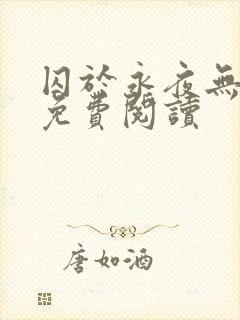 囚於永夜無
免費閱讀
唐如酒